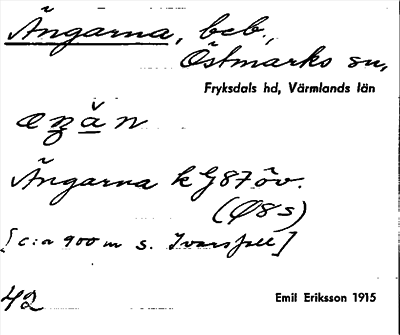 Ängarna, beb,
Östmarks sn,
Fryksdals hd, Värmlands län
Ängarna k G87öv.
(Ø8s)
[c:a 900 m s. Ivarsfall]
42
Emil Eriksson 1915